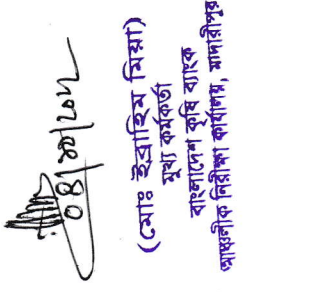 (মোঃ ইব্রাহিম মিয়া)
মুখ্য কর্মকর্তা
বাংলাদেশ কৃষি ব্যাংক
আঞ্চলীক নিরীক্ষা কার্যালয়, মাদারীপুর